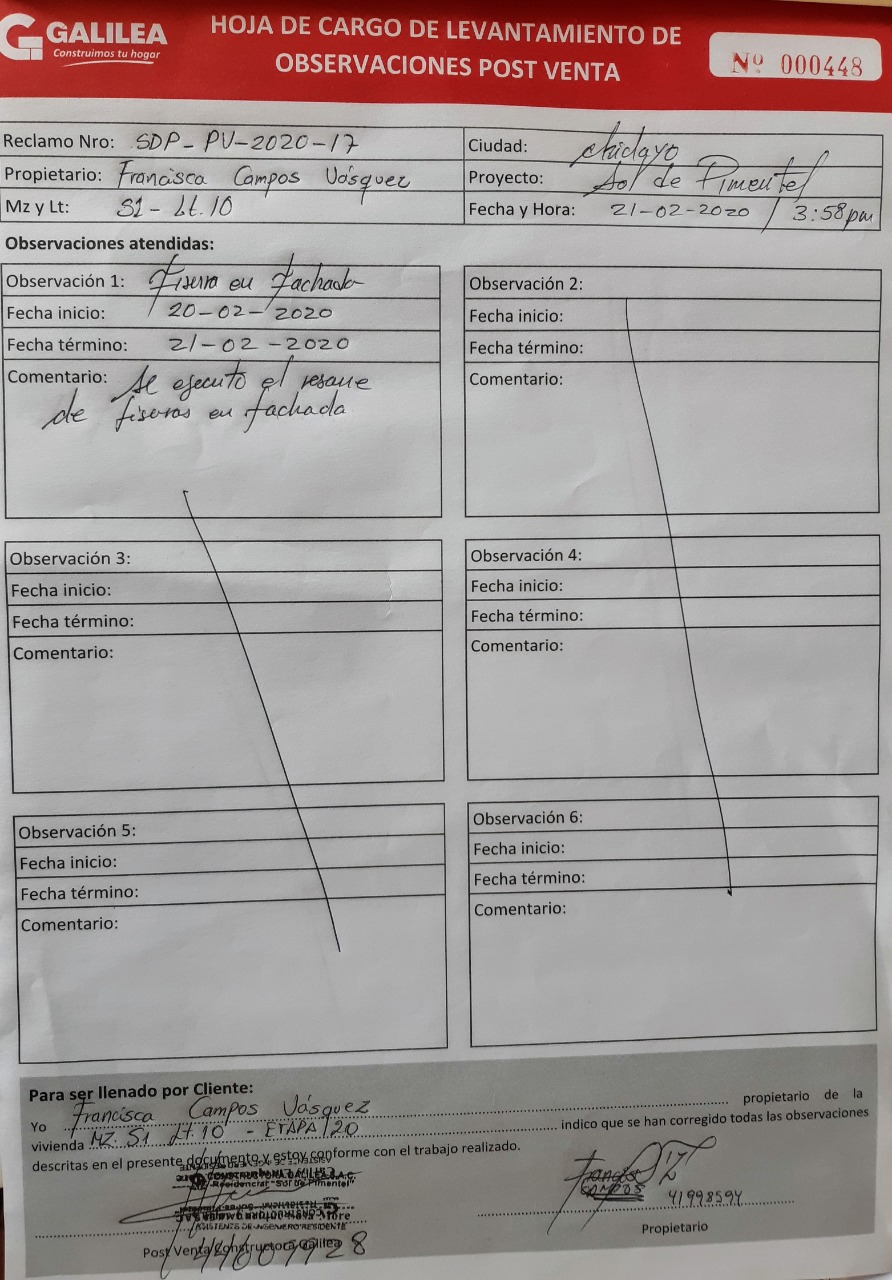 GALILEA
Construimos tu hogar
HOJA DE CARGO DE LEVANTAMIENTO DE
OBSERVACIONES POST VENTA
Nº 000448
Reclamo Nro: SDP-PV-2020-17
Ciudad: chiclayo
Propietario: Francisca Campos Vásquez
Proyecto: Sol de Pimentel
Mz y Lt: S1 - Lt.10
Fecha y Hora: 21-02-2020 / 3:58pm
Observaciones atendidas:
Observación 1: Fisura en fachada
Fecha inicio: 20-02-2020
Fecha término: 21-02-2020
Comentario: Se ejecuto el resane
de fisuras en fachada
Observación 2:
Fecha inicio:
Fecha término:
Comentario:
Observación 3:
Fecha inicio:
Fecha término:
Comentario:
Observación 4:
Fecha inicio:
Fecha término:
Comentario:
Observación 5:
Fecha inicio:
Fecha término:
Comentario:
Observación 6:
Fecha inicio:
Fecha término:
Comentario:
Para ser llenado por Cliente:
Yo Francisca Campos Vásquez propietario de la
vivienda MZ. S1 Lt.10 - ETAPA 20 indico que se han corregido todas las observaciones
descritas en el presente documento y estoy conforme con el trabajo realizado.
CONSTRUCTORA GALILEA S.A.C.
Residencial "Sol de Pimentel"
ASISTENTE DE INGENIERO RESIDENTE
Post Venta Constructora Galilea
Francisca
CAMPOS
41998594
Propietario